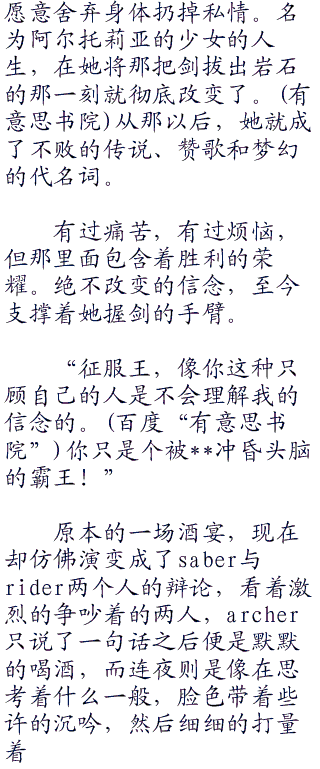 愿意舍弃身体扔掉私情。名
为阿尔托莉亚的少女的人
生，在她将那把剑拔出岩石
的那一刻就彻底改变了。(有
意思书院)从那以后，她就成
了不败的传说、赞歌和梦幻
的代名词。
有过痛苦，有过烦恼，
但那里面包含着胜利的荣
耀。绝不改变的信念，至今
支撑着她握剑的手臂。
“征服王，像你这种只
顾自己的人是不会理解我的
信念的。(百度“有意思书
院”)你只是个被**冲昏头脑
的霸王！”
原本的一场酒宴，现在
却仿佛演变成了saber与
rider两个人的辩论，看着激
烈的争吵着的两人，archer
只说了一句话之后便是默默
的喝酒，而连夜则是像在思
考着什么一般，脸色带着些
许的沉吟，然后细细的打量
着